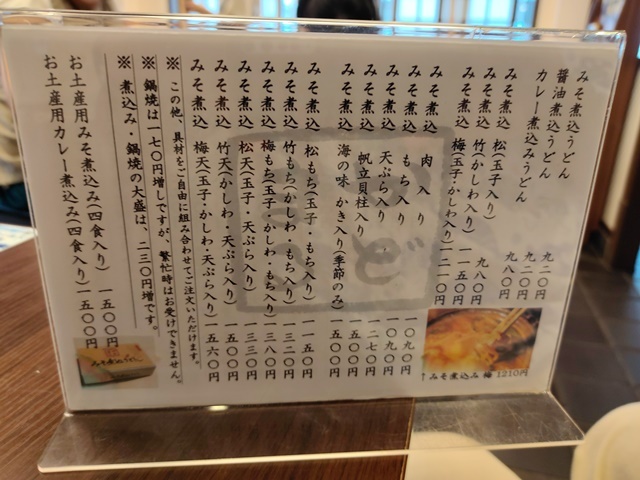 みそ煮込うどん 九二〇円
醤油煮込うどん 九二〇円
カレー煮込みうどん 九八〇円
みそ煮込 松(玉子入り) 九八〇円
みそ煮込 竹(かしわ入り) 一一五〇円
みそ煮込 梅(玉子・かしわ入り) 一二一〇円
みそ煮込 肉入り 一〇九〇円
みそ煮込 もち入り 一〇九〇円
みそ煮込 天ぷら入り 一二七〇円
みそ煮込 帆立貝柱入り 一五〇〇円
みそ煮込 海の味 かき入り(季節のみ) 一五〇〇円
みそ煮込 松もち(玉子・もち入り) 一一五〇円
みそ煮込 竹もち(かしわ・もち入り) 一三二〇円
みそ煮込 梅もち(玉子・かしわ・もち入り) 一三八〇円
みそ煮込 松天(玉子・天ぷら入り) 一三三〇円
みそ煮込 竹天(かしわ・天ぷら入り) 一五〇〇円
みそ煮込 梅天(玉子・かしわ・天ぷら入り) 一五六〇円
※ この他、具材をご自由に組み合わせてご注文いただけます。
※ 鍋焼は一七〇円増しですが、繁忙時はお受けできません。
※ 煮込み・鍋焼の大盛は、二三〇円増です。
お土産用みそ煮込み(四食入り) 一五〇〇円
お土産用カレー煮込み(四食入り) 一五〇〇円
↑みそ煮込み 梅 1210円